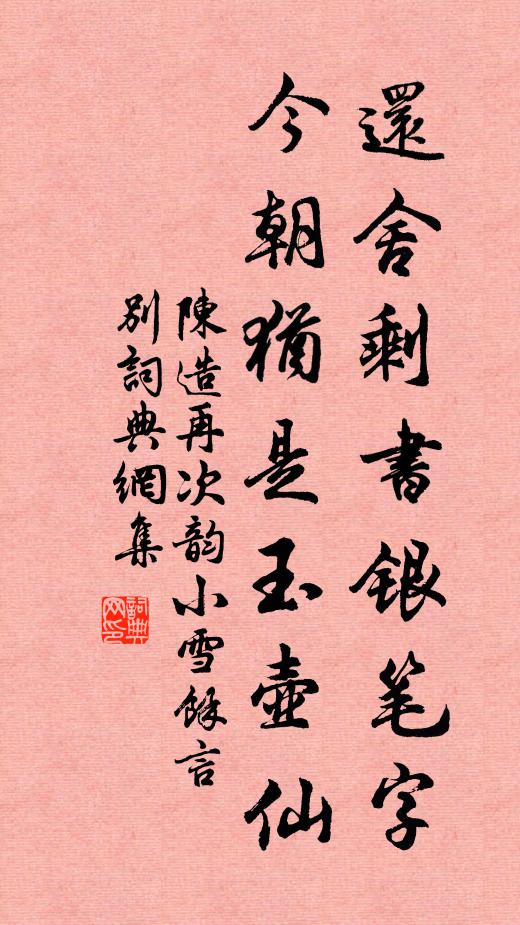 還舍剩書銀笔字
今朝猶是玉壺仙
陳造再次韵小雪餘言
别詞典網集
詞典网印